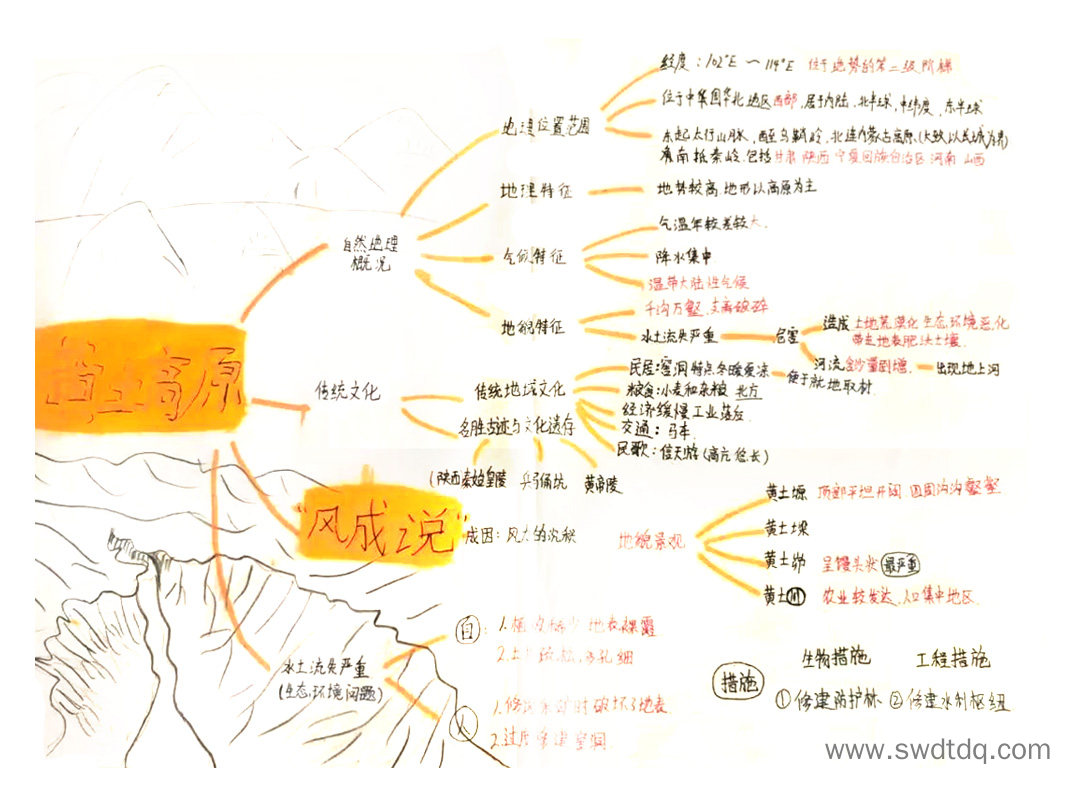 黄土高原
自然地理
概况
地理位置范围
经度：102°E ～ 114°E 位于地势的第二级阶梯
位于中国华北地区西部，居于内陆，北半球，中纬度，东半球
东起太行山脉，西至乌鞘岭，北连内蒙古高原(大致以长城为界)
南抵秦岭，包括甘肃 陕西 宁夏回族自治区 河南 山西
地理特征
地势较高，地形以高原为主
气候特征
气温年较差较大
降水集中
温带大陆性气候
地貌特征
千沟万壑，支离破碎
水土流失严重
危害
造成土地荒漠化 生态环境恶化
带走地表肥沃土壤
河流含沙量剧增
出现地上河
传统文化
传统地域文化
民居：窑洞 特点冬暖夏凉
便于就地取材
粮食：小麦和杂粮 北方
经济缓慢工业落后
交通：马车
民歌：信天游(高亢悠长)
名胜古迹与文化遗存
(陕西秦始皇陵 兵马俑坑 黄帝陵
“风成之说”
成因：风力的沉积
地貌景观
黄土塬 顶部平坦开阔 四周沟沟壑壑
黄土梁
黄土峁 呈馒头状 最严重
黄土川 农业较发达，人口集中地区
水土流失严重
(生态环境问题)
自：
1. 地表裸露
2.
人
1. 破坏了地表
2. 窑洞
措施
生物措施 工程措施
①修建防护林 ②修建水利枢纽
www.swdtdq.com